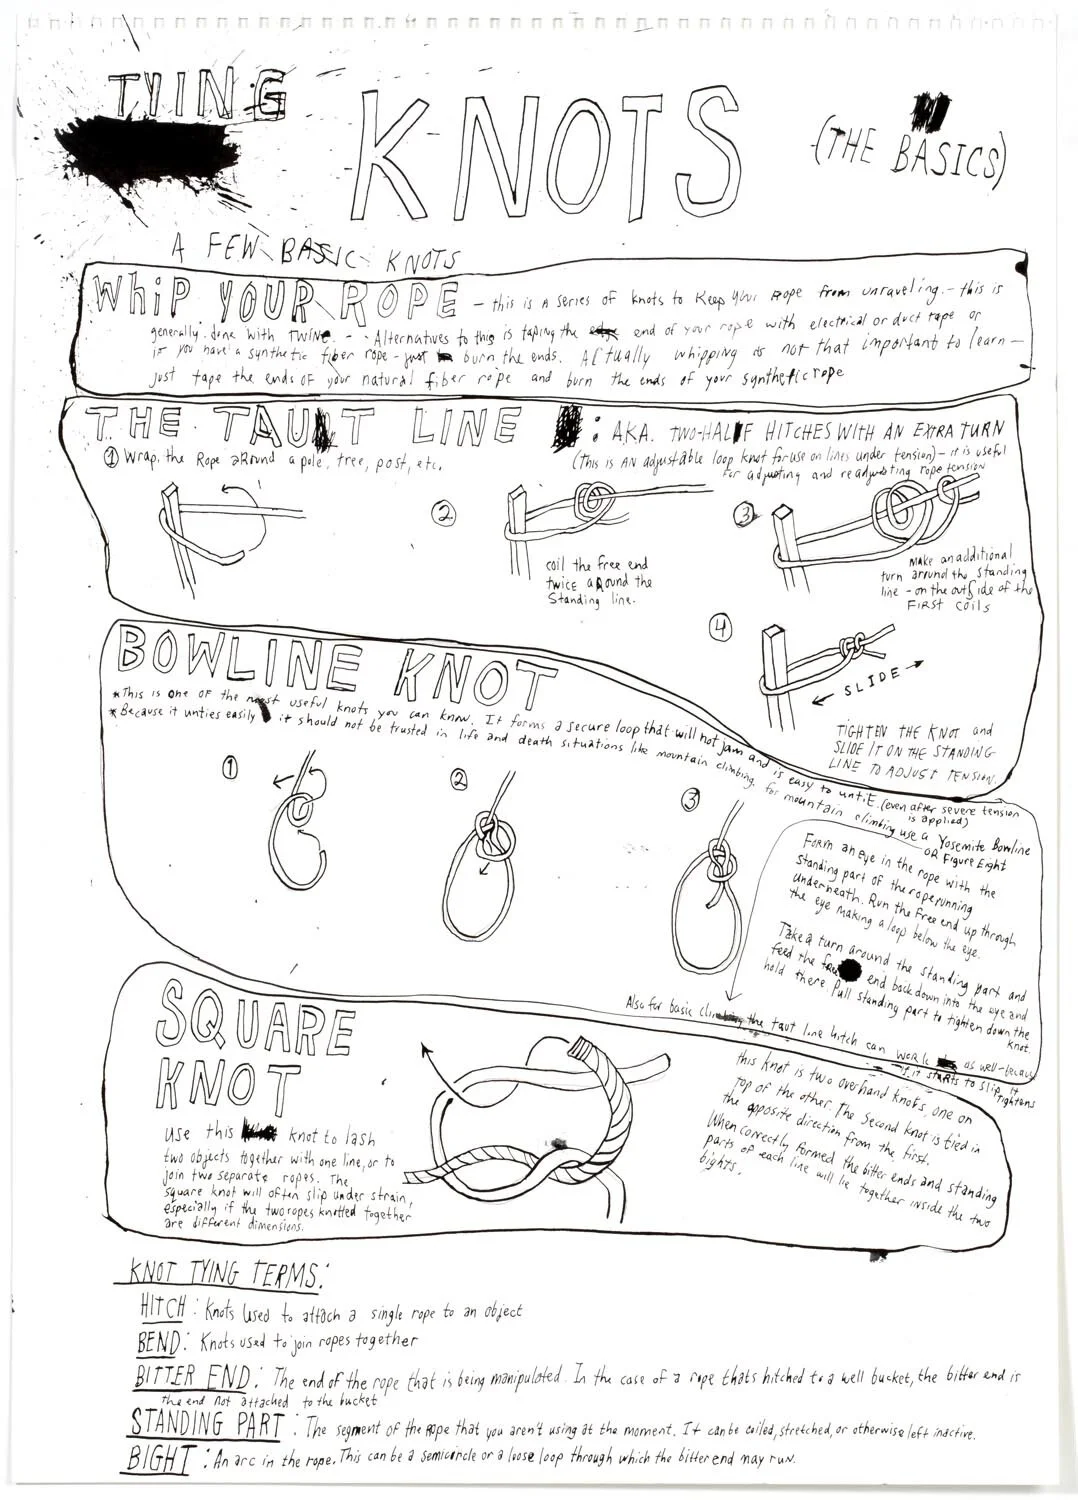 TYING
KNOTS
(THE BASICS)
A FEW BASIC KNOTS
WHIP YOUR ROPE - this is a series of knots to keep your rope from unraveling. - this is
generally done with TWINE. - Alternatives to this is taping the end of your rope with electrical or duct tape or
if you have a synthetic fiber rope - just burn the ends. Actually whipping is not that important to learn -
just tape the ends of your natural fiber rope and burn the ends of your synthetic rope
THE TAUT LINE : AKA. TWO-HALF HITCHES WITH AN EXTRA TURN
(This is AN adjustable loop knot for use on lines under tension) - it is useful
for adjusting and readjusting rope tension
① Wrap the Rope around a pole, tree, post, etc.
②
coil the free end
twice around the
Standing line.
③
Make an additional
turn around the standing
line - on the outside of the
FIRST coils
④
SLIDE
TIGHTEN THE KNOT and
SLIDE IT ON THE STANDING
LINE TO ADJUST TENSION.
BOWLINE KNOT
*This is one of the most useful knots you can know. It forms a secure loop that will not jam and is easy to untie. (even after severe tension
is applied)
*Because it unties easily it should not be trusted in life and death situations like mountain climbing. for mountain climbing use a Yosemite Bowline
OR Figure Eight
①
②
③
Form an eye in the rope with the
standing part of the rope running
underneath. Run the free end up through
the eye making a loop below the eye.
Take a turn around the standing part and
feed the free end back down into the eye and
hold there. Pull standing part to tighten down the
knot.
Also for basic climbing the taut line hitch can work as well - because
if it starts to slip, it
tightens
SQUARE
KNOT
Use this knot to lash
two objects together with one line, or to
join two separate ropes. The
square knot will often slip under strain,
especially if the two ropes knotted together
are different dimensions.
this knot is two overhand knots, one on
top of the other. The second knot is tied in
the opposite direction from the first.
When correctly formed the bitter ends and standing
parts of each line will lie together inside the two
bights.
KNOT TYING TERMS:
HITCH: Knots used to attach a single rope to an object
BEND: Knots used to join ropes together
BITTER END: The end of the rope that is being manipulated. In the case of a rope thats hitched to a well bucket, the bitter end is
the end not attached to the bucket
STANDING PART: The segment of the rope that you aren't using at the moment. It can be coiled, stretched, or otherwise left inactive.
BIGHT: An arc in the rope. This can be a semicircle or a loose loop through which the bitter end may run.